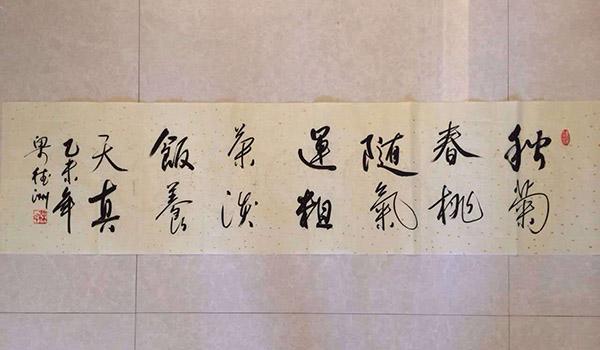 秋菊
春桃
随氣
運粗
茶淡
飯養
天真
乙未年
桂洲